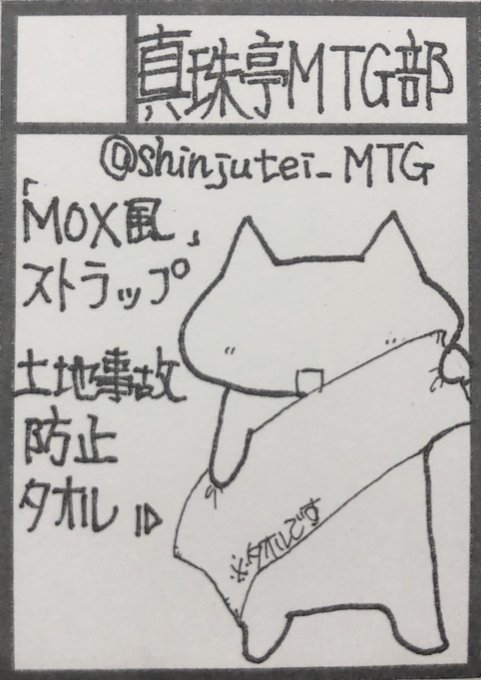 真珠亭MTG部
@shinjutei_MTG
「MOX風」
ストラップ
土地事故
防止
タオル
※タオルです